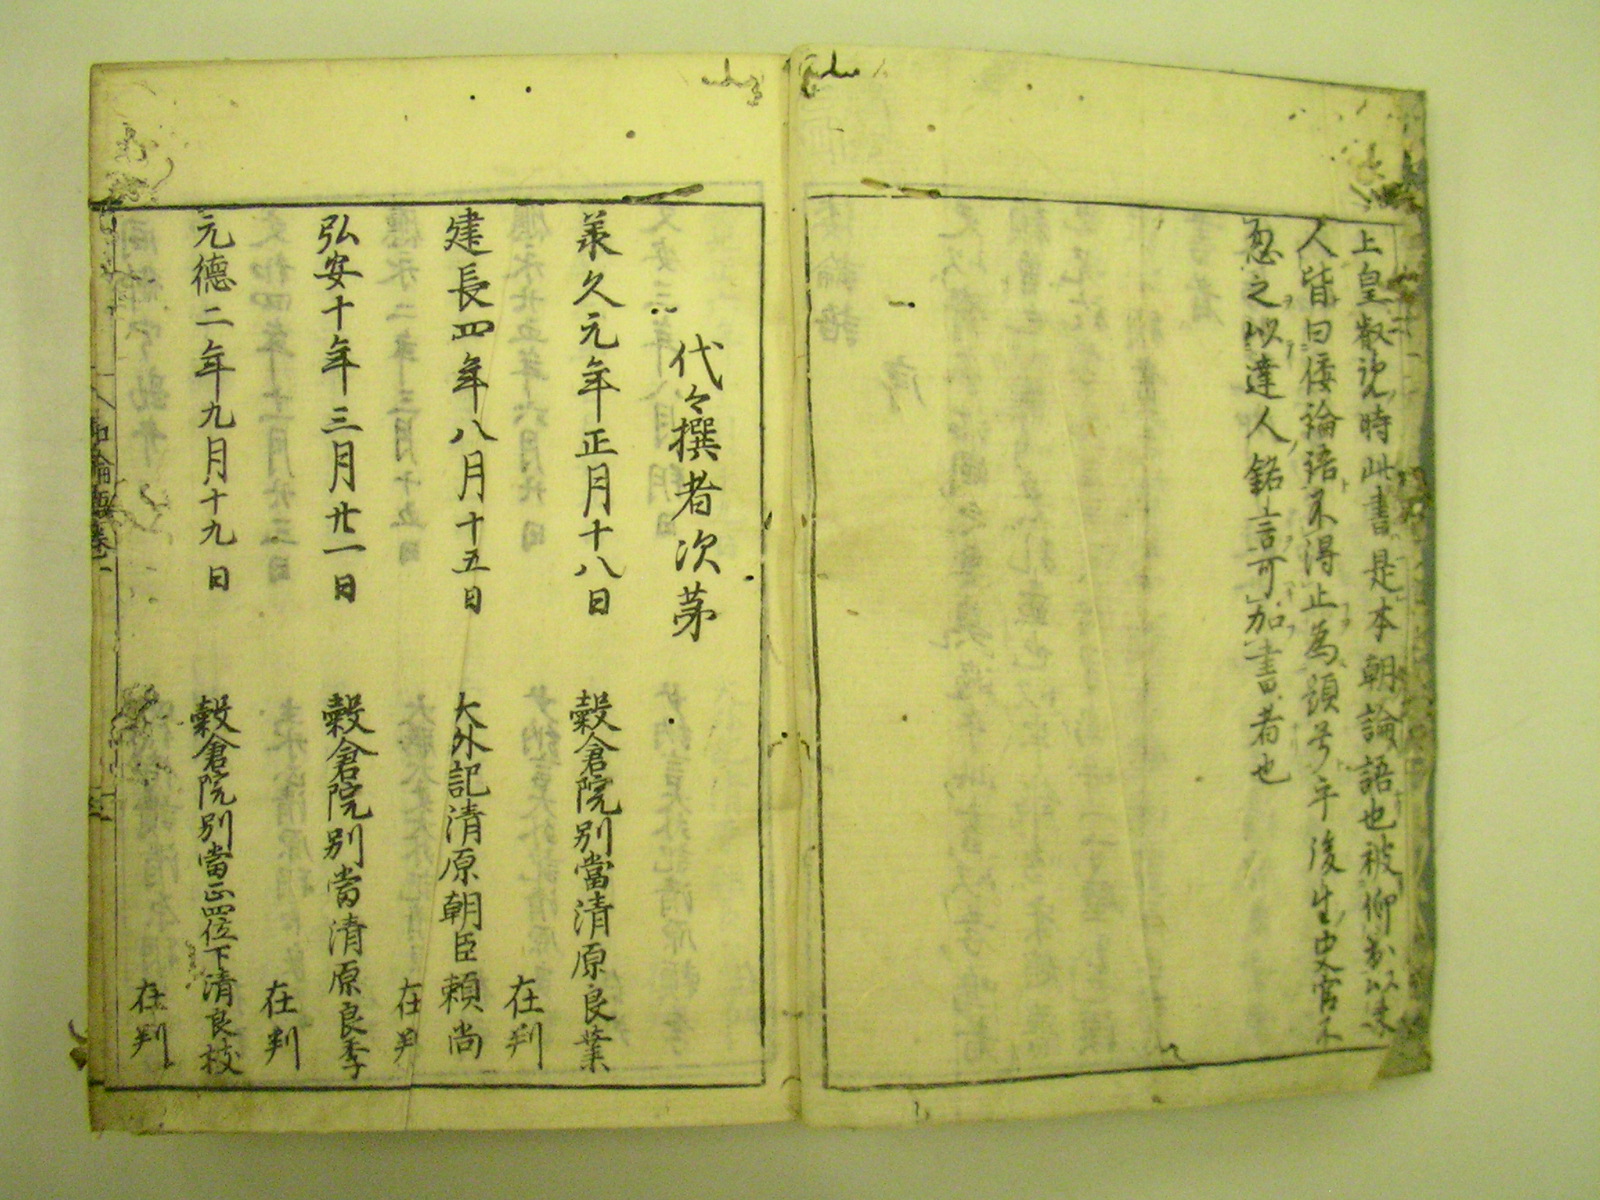 上皇叡覧時此書是本朝論語也被仰出以来
人皆曰倭論語不得止為題号乎後生史官不
忽之以達人銘言可加書者也
代々撰者次第
承久元年正月十八日 穀倉院別當清原良業
在判
建長四年八月十五日 大外記清原朝臣頼尚
在判
弘安十年三月廿一日 穀倉院別當清原良季
在判
元德二年九月十九日 穀倉院別當正四位下清良枝
在判
和論語卷一